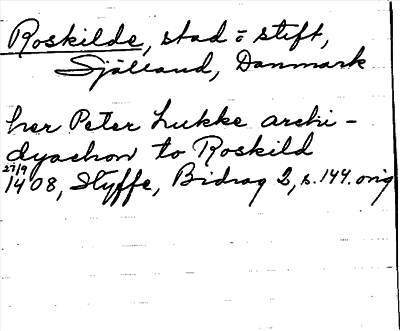 Roskilde, stad o stift,
Själland, Danmark
her Peter Lukke archi-
dyachon to Roskild
27/9
1408, Styffe, Bidrag 2, s. 144. orig